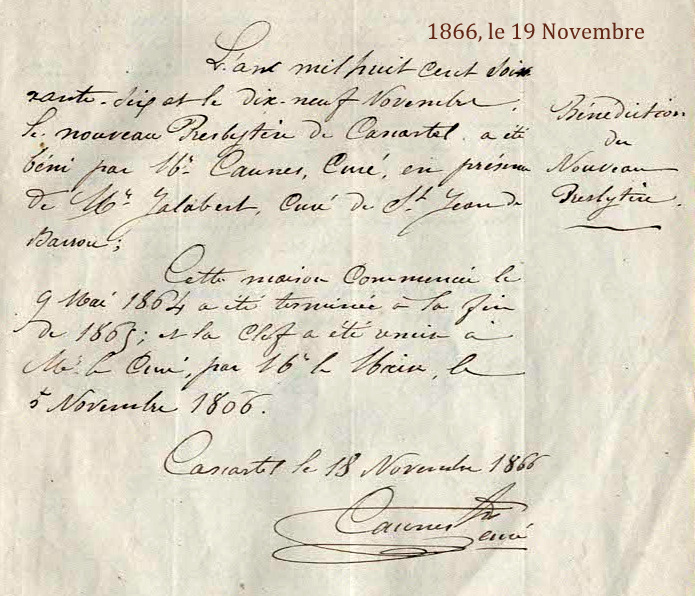 1866, le 19 Novembre
L'an mil huit cent soix
xante-six et le dix-neuf Novembre,
le nouveau Presbytère de Cascastel a été
béni par Mr. Caunes, Curé, en présence
de Mr. Jalabert, Curé de St Jean de
Barrou;
Bénédiction
du
Nouveau
Presbytère.
Cette maison commencée le
9 Mai 1864 a été terminée à la fin
de 1865; et la Clef a été remise à
Mr. le Curé, par Mr. le Maire, le
5 Novembre 1866.
Cascastel le 18 Novembre 1866
Caunes
curé